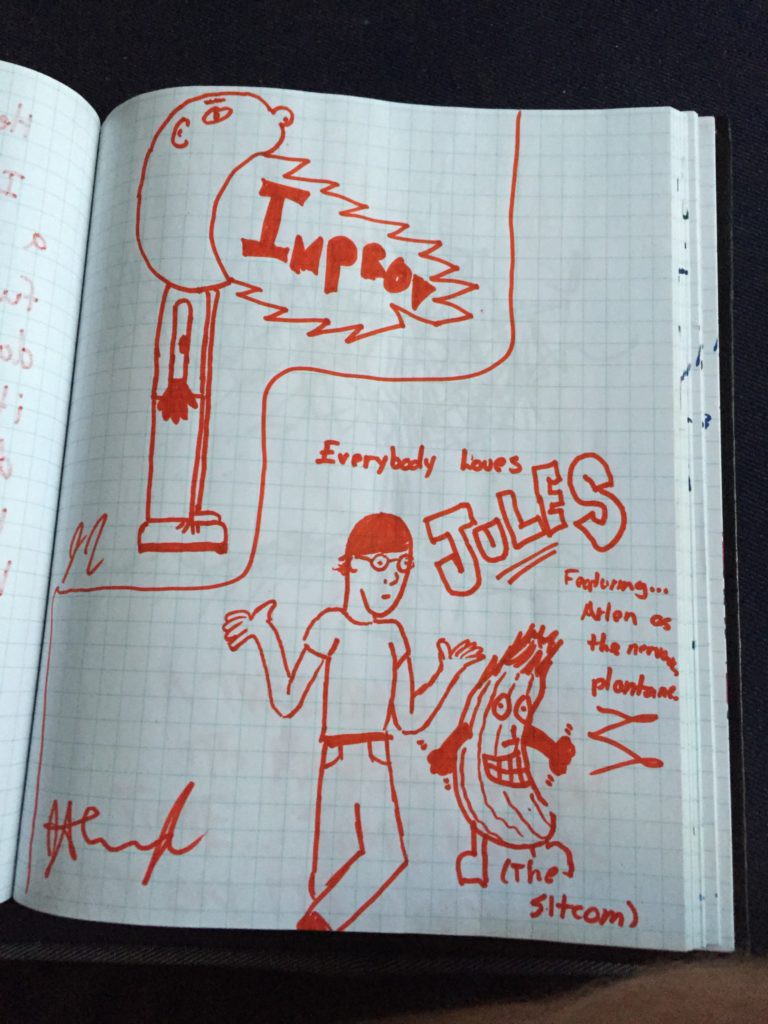 Improv
Everybody Loves
JULES
Featuring...
Arlen as
the nervous
plantane
(The
sitcom)